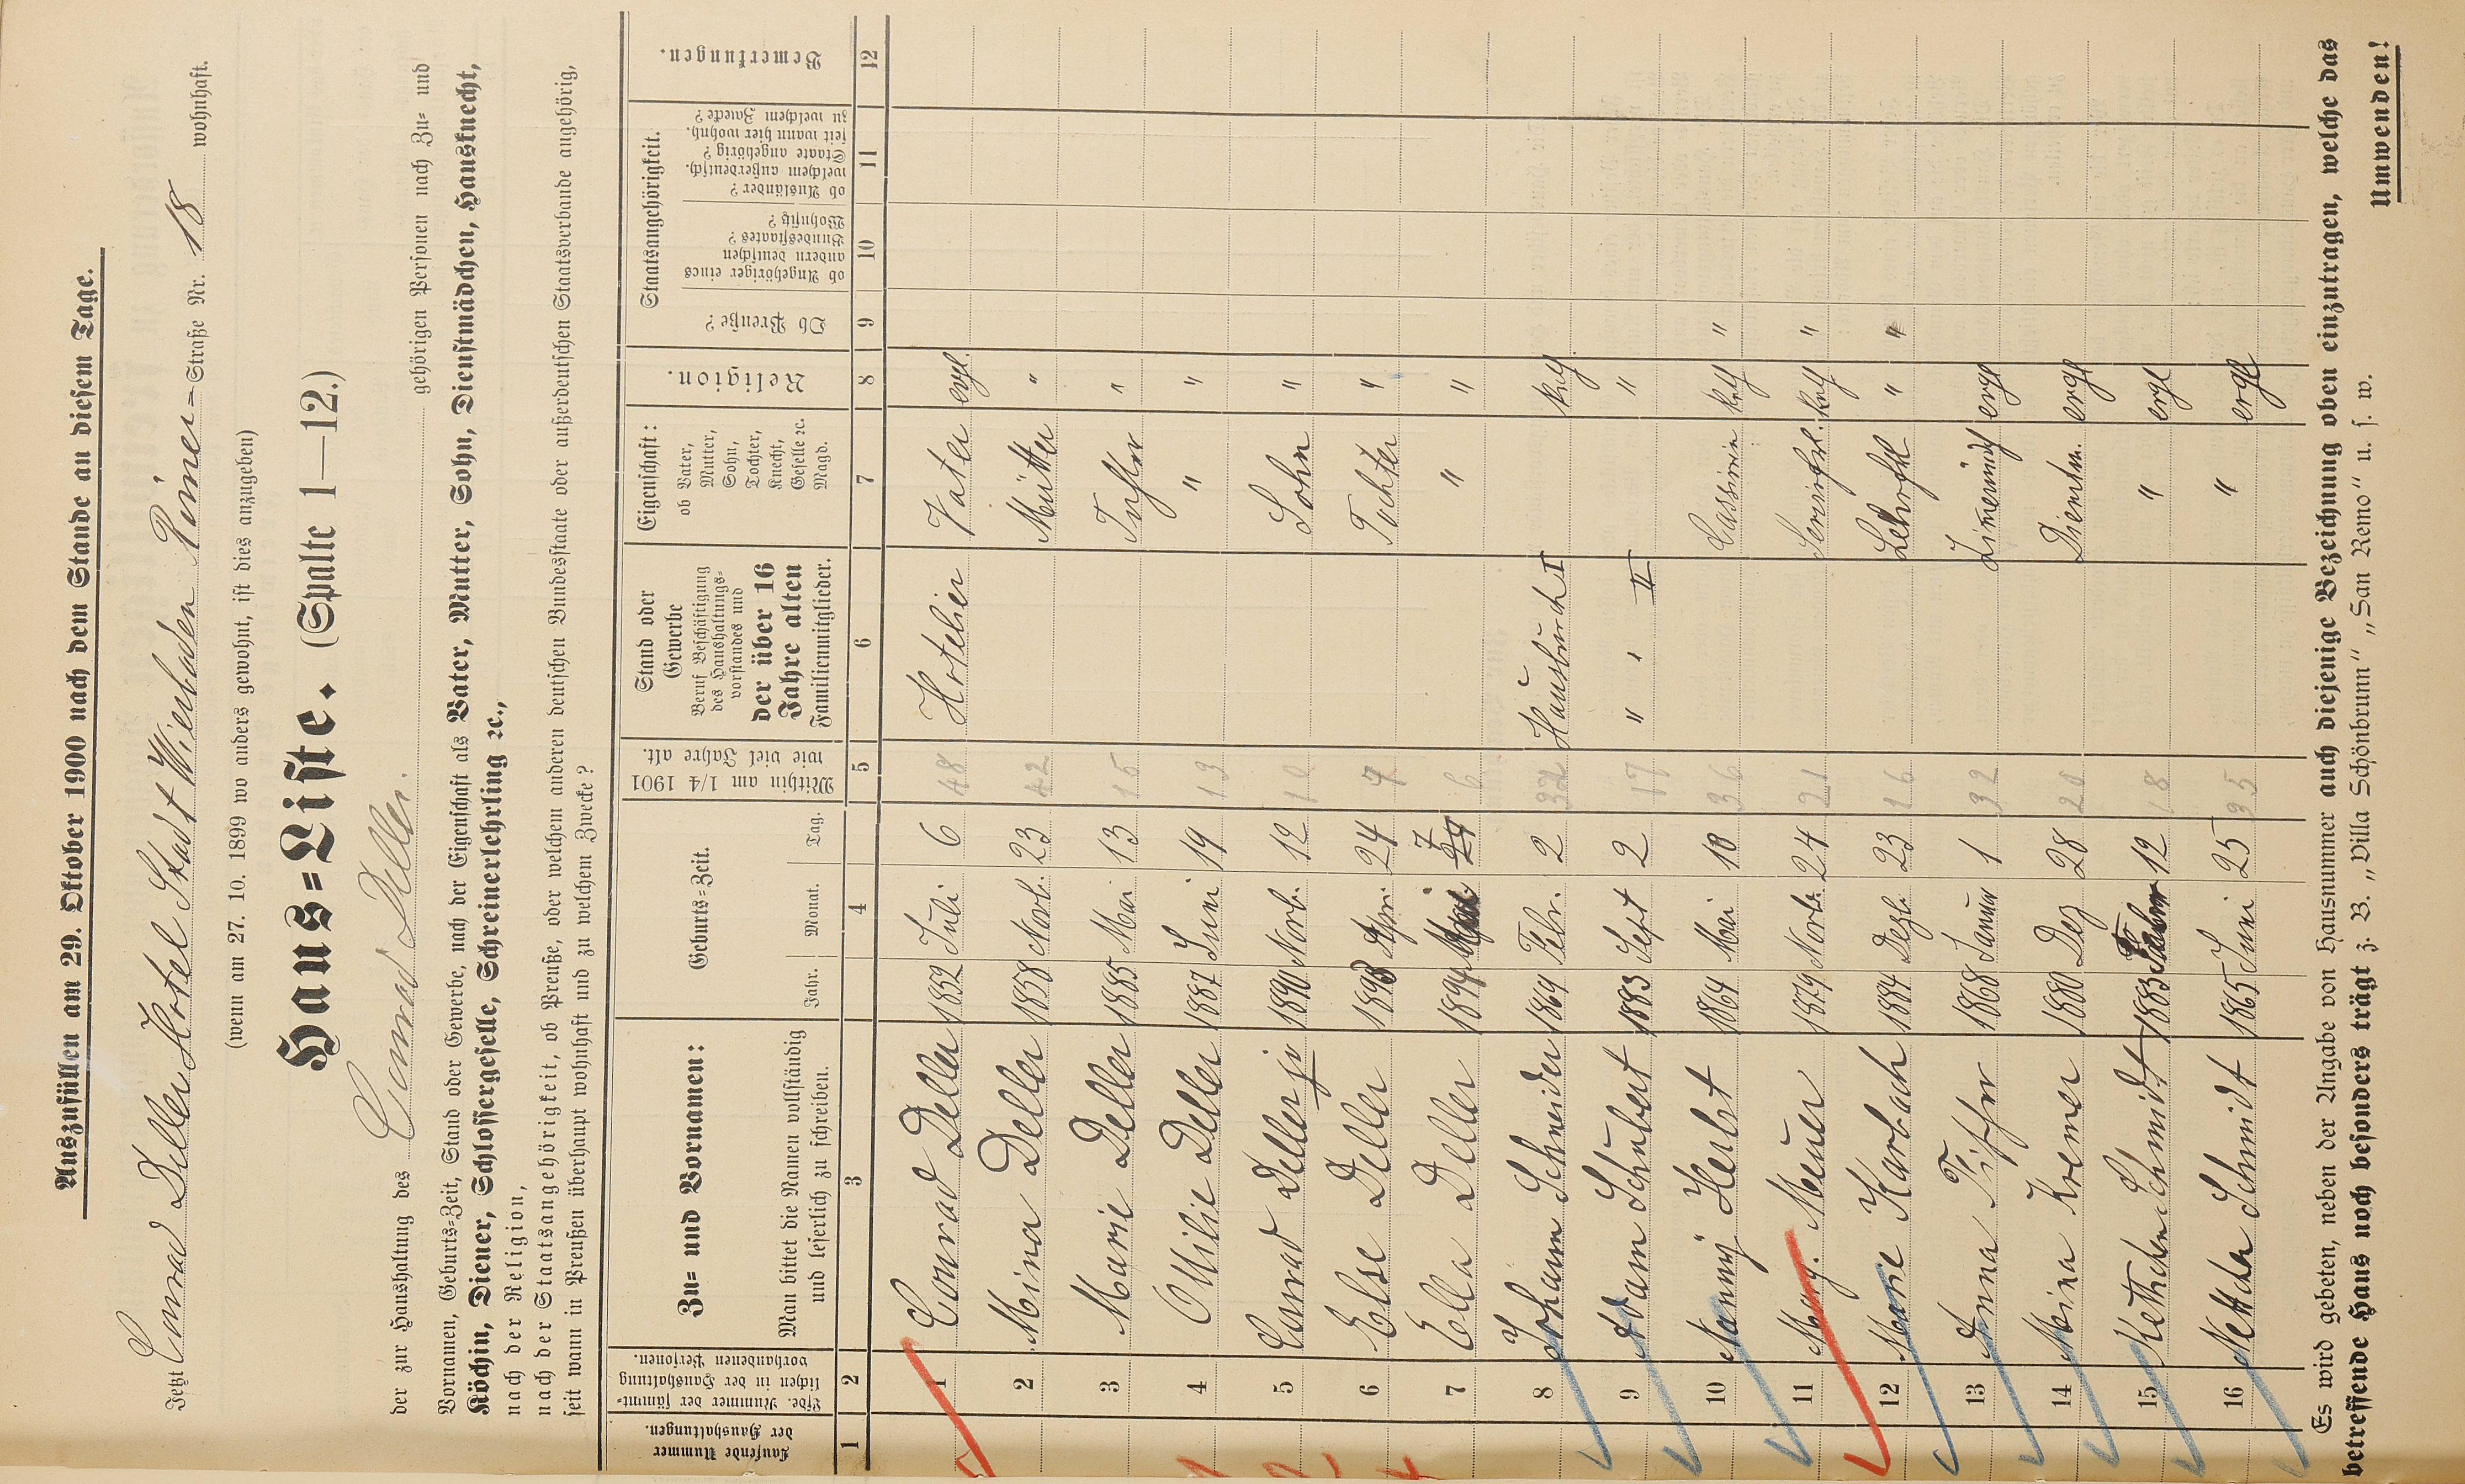 Auszufüllen am 29. Oktober 1900 nach dem Stande an diesem Tage.
Jetzt Conrad Deller Hotel Stadt Wiesbaden Römer-Straße Nr. 18 wohnhaft.
(wenn am 27. 10. 1899 wo anders gewohnt, ist dies anzugeben)
Haus=Liste. (Spalte 1—12.)
der zur Haushaltung des Conrad Deller. gehörigen Personen nach Zu= und
Vornamen, Geburts=Zeit, Stand oder Gewerbe, nach der Eigenschaft als Vater, Mutter, Sohn, Dienstmädchen, Hausknecht,
Köchin, Diener, Schlossergeselle, Schreinerlehrling ꝛc.,
nach der Religion,
nach der Staatsangehörigkeit, ob Preuße, oder welchem anderen deutschen Bundesstaate oder außerdeutschen Staatsverbande angehörig,
seit wann in Preußen überhaupt wohnhaft und zu welchem Zwecke?
Laufende Nummer der Haushaltungen
Lfde. Nummer der sämmt=lichen in der Haushaltung vorhandenen Personen.
Zu= und Vornamen:
Man bittet die Namen vollständig und leserlich zu schreiben.
Geburts=Zeit.
Jahr. Monat. Tag.
Mithin am 1/4 1901 wie viel Jahre alt.
Stand oder Gewerbe
Beruf Beschäftigung des Haushaltungs=vorstandes und
der über 16 Jahre alten Familienmitglieder.
Eigenschaft:
ob Vater, Mutter, Sohn, Tochter, Knecht, Geselle ꝛc. Magd.
Religion.
Staatsangehörigkeit.
Ob Preuße?
ob Angehöriger eines andern deutschen Bundesstaates? Wohnsitz?
ob Ausländer? welchem außerdeutsch. Staate angehörig? seit wann hier wohnh. zu welchem Zwecke?
Bemerkungen.
1 2 3 4 5 6 7 8 9 10 11 12
1 Conrad Deller 1852 Juli 6 48 Hotelier Vater evgl.
2 Mina Deller 1858 Novb. 23 42 Mutter "
3 Marie Deller 1885 Mai 13 15 Tochter "
4 Ottilie Deller 1887 Juni 19 13 " "
5 Conrad Deller jr 1890 Novb. 12 10 Sohn "
6 Else Deller 1893 Apr. 24 7 Tochter "
7 Ella Deller 1894 7 6 " "
8 Johann Schneider 1869 Febr. 2 Hausbursch I kth
9 Adam Schubert 1883 Sept 2 17 " " II "
10 Nanny Herbst 1864 Mai 10 36 kth "
11 Marg. Meuer 1879 Novb. 24 21 kth "
12 Marie Karbach 1884 Dezb. 23 16 " "
13 Anna 1868 Januar 1 32 evgl
14 Mina Kremer 1880 Dez 28 20 Dienstm. evgl
15 Kethchen Schmidt 1883 12 18 " evgl
16 Schmidt 1865 Juni 25 35 " evgl
Es wird gebeten, neben der Angabe von Hausnummer auch diejenige Bezeichnung oben einzutragen, welche das
betreffende Haus noch besonders trägt z. B. „Villa Schönbrunn" „San Remo" u. s. w.
Umwenden!